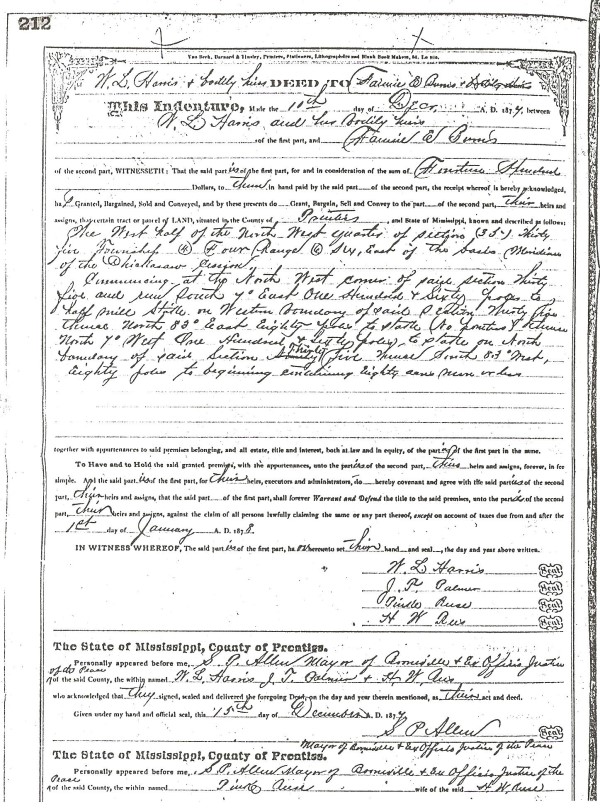 212
Van Beek, Barnard & Tinsley, Printers, Stationers, Lithographers and Blank Book Makers, St. Louis.
W. L. Harris & bodily heirs DEED TO Fannie E Burns & Bodily heirs
This Indenture, Made the 10th day of Dec A. D. 1877, between
W. L. Harris and his bodily heirs
of the first part, and Fannie E Burns
of the second part, WITNESSETH: That the said parties of the first part, for and in consideration of the sum of Fourteen Hundred
Dollars, to them in hand paid by the said part of the second part, the receipt whereof is hereby acknowledged,
ha Granted, Bargained, Sold and Conveyed, and by these presents do Grant, Bargain, Sell and Convey to the part of the second part, their heirs and
assigns, that certain tract or parcel of LAND, situated in the County of Prentiss, and State of Mississippi, known and described as follows:
The West half of the North West quarter of section (35) Thirty
five Township (4) Four (Range (6) Six, East of the basis Meridian
of the Chickasaw Cession,
Commencing at the North West corner of said section thirty
five and run South 7° East One Hundred & Sixty poles to
half mile Stake on Western Boundary of said Section Thirty five
thence North 83° East Eighty poles to stake (No pointers) thence
North 7° West One Hundred & Sixty poles, to stake on North
boundary of said Section Thirty five thence South 83° West,
Eighty poles to beginning containing Eighty acres more or less
together with appurtenances to said premises belonging, and all estate, title and interest, both at law and in equity, of the parties of the first part in the same.
To Have and to Hold the said granted premises, with the appurtenances, unto the parties of the second part, their heirs and assigns, forever, in fee
simple. And the said parties of the first part, for their heirs, executors and administrators, do hereby covenant and agree with the said parties of the second
part, their heirs and assigns, that the said part of the first part, shall forever Warrant and Defend the title to the said premises, unto the parties of the second
part, their heirs and assigns, against the claim of all persons lawfully claiming the same or any part thereof, except on account of taxes due from and after the
1st day of January A. D. 1878.
IN WITNESS WHEREOF, The said parties of the first part, ha hereunto set their hand and seal, the day and year above written.
W. L. Harris Seal
J. T. Palmer Seal
Seal
H W Seal
The State of Mississippi, County of Prentiss.
Personally appeared before me, S. P. Allen Mayor of Booneville & Ex Officio Justice
of the Peace
of the said County, the within named W. L. Harris J. T. Palmer & H W
who acknowledged that they signed, sealed and delivered the foregoing Deed, on the day and year therein mentioned, as their act and deed.
Given under my hand and official seal, this 15th day of December A. D. 1877
S P Allen Seal
Mayor of Booneville & Ex Officio Justice of the Peace
The State of Mississippi, County of Prentiss.
Personally appeared before me, S. P. Allen Mayor of Booneville & Ex Officio Justice of the
Peace
of the said County, the within named wife of the said H W